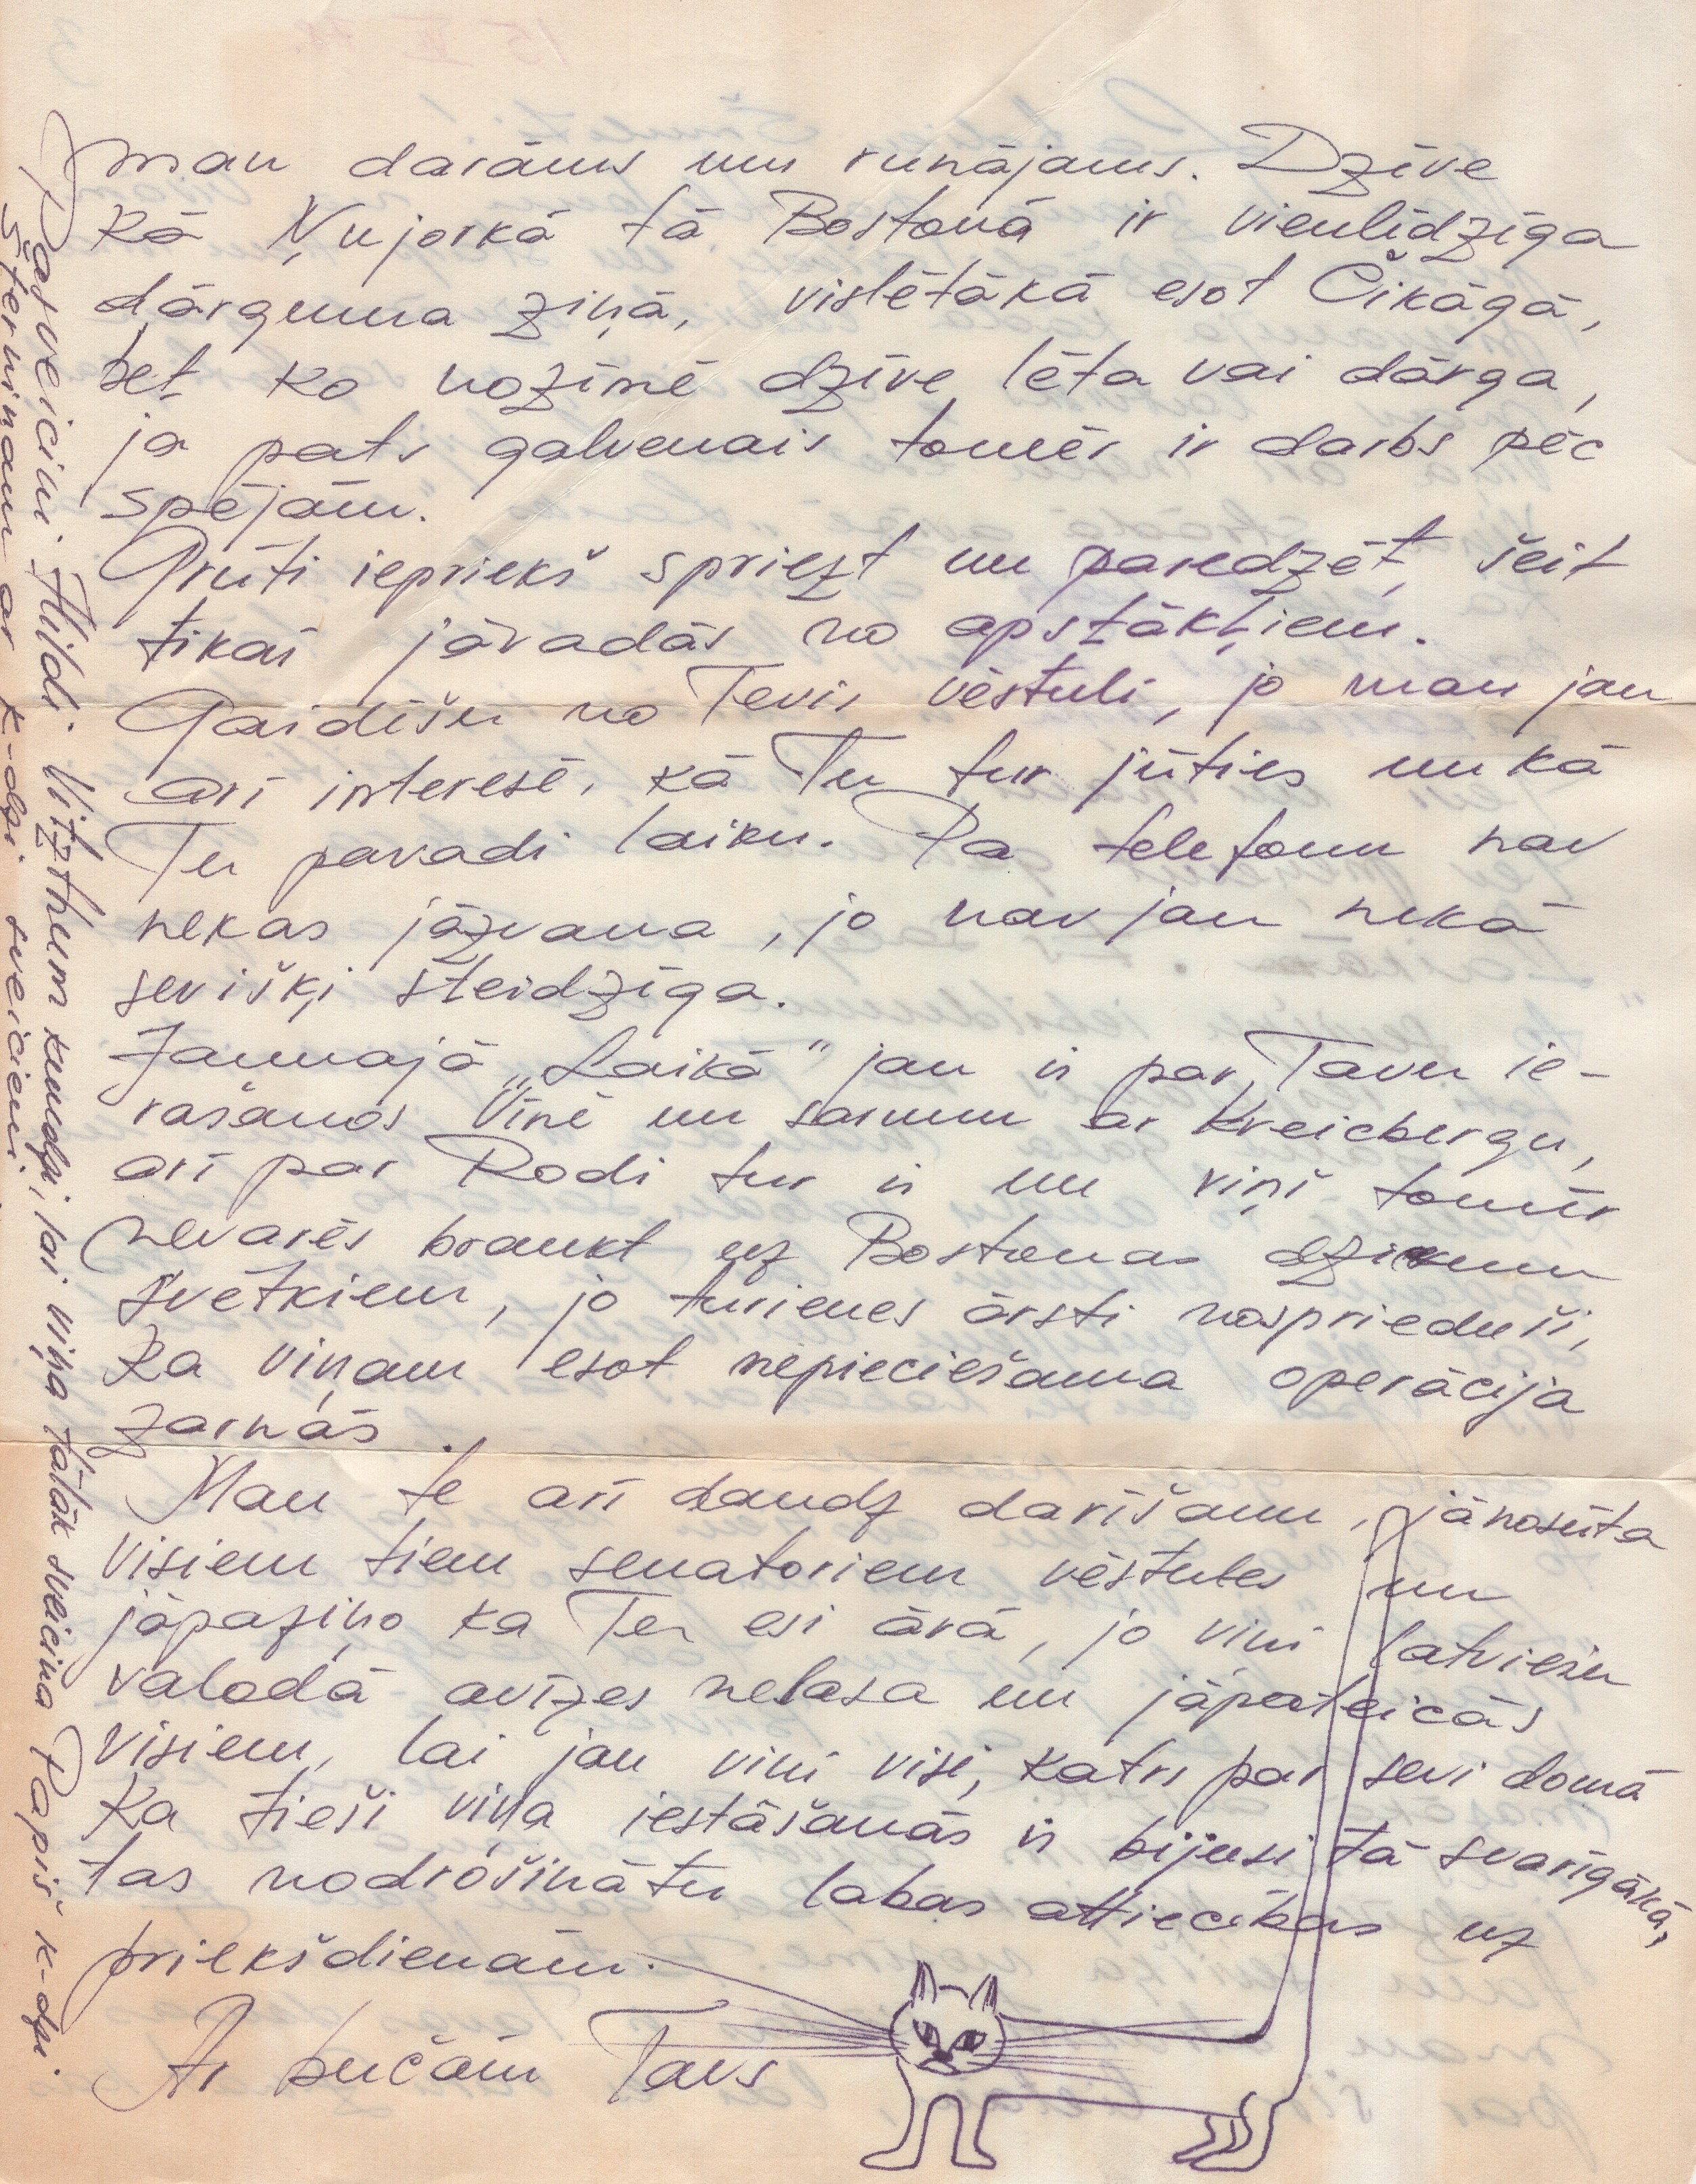 man darāms un runājams. Dzīve
kā Ņujorkā tā Bostonā ir vienlīdzīga
dārguma ziņā, vislētākā esot Čikāgā,
bet ko nozīmē dzīve lēta vai dārga,
ja pats galvenais tomēr ir darbs pēc
spējām.
Grūti iepriekš spriezt un paredzēt, šeit
tikai jāvadās no apstākļiem.
Gaidīšu no Tevis vēstuli, jo man jau
arī interesē, kā Tu tur jūties un kā
Tu pavadi laiku. Pa telefonu nav
nekas jāzvana, jo nav jau nekā
seviški steidzīga.
Jaunajā „Laikā" jau ir par Tavu ie-
rašanos Vīnē un sarunu ar Kreicbergu,
arī par Rodi tur ir un viņi tomēr
nevarēs braukt uz Bostonas dziesmu
svētkiem, jo turienes ārsti nosprieduši,
ka viņam esot nepieciešama operācija
zarnās.
Man te arī daudz darīšanu, jānosūta
visiem tiem senatoriem vēstules un
jāpaziņo ka Tu esi ārā, jo viņi latviešu
valodā avīzes nelasa un jāpateicās
visiem, lai jau viņi visi, katrs par sevi domā
ka tieši viņa iestāšanās ir bijusi tā svarīgākā,
tas nodrošinātu labas attiecības uz
priekšdienām.
Ar bučām Tavs
Pasveicini Hildi. Vitzthum kundzi, lai viņa tālāk sveicina Papiš k-dzi.
Šterniņam ar k-dzi sveicieni